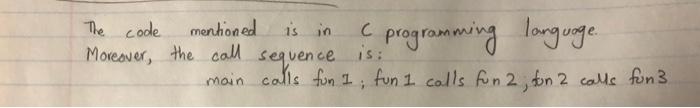 The code mentioned is in C programming language.
Moreover, the call sequence is:
main calls fun 1; fun 1 calls fun 2; fun 2 calls fun 3